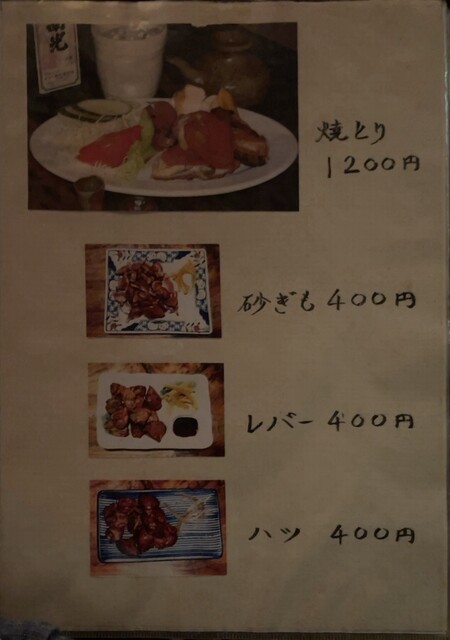 焼とり
1200円
砂ぎも 400円
レバー 400円
ハツ 400円